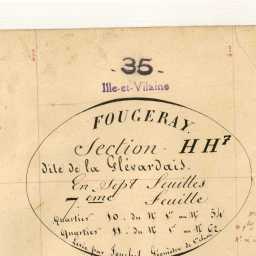 - 35 -
Ille-et-Vilaine
FOUGERAY.
Section HH⁷
dite de la Glévardais.
En Sept Feuilles
7 ème Feuille
Quartier 10. du N° 1er au N° 54
Quartier 11. du N° 1er au N° 62.
Levée par Géomètre de